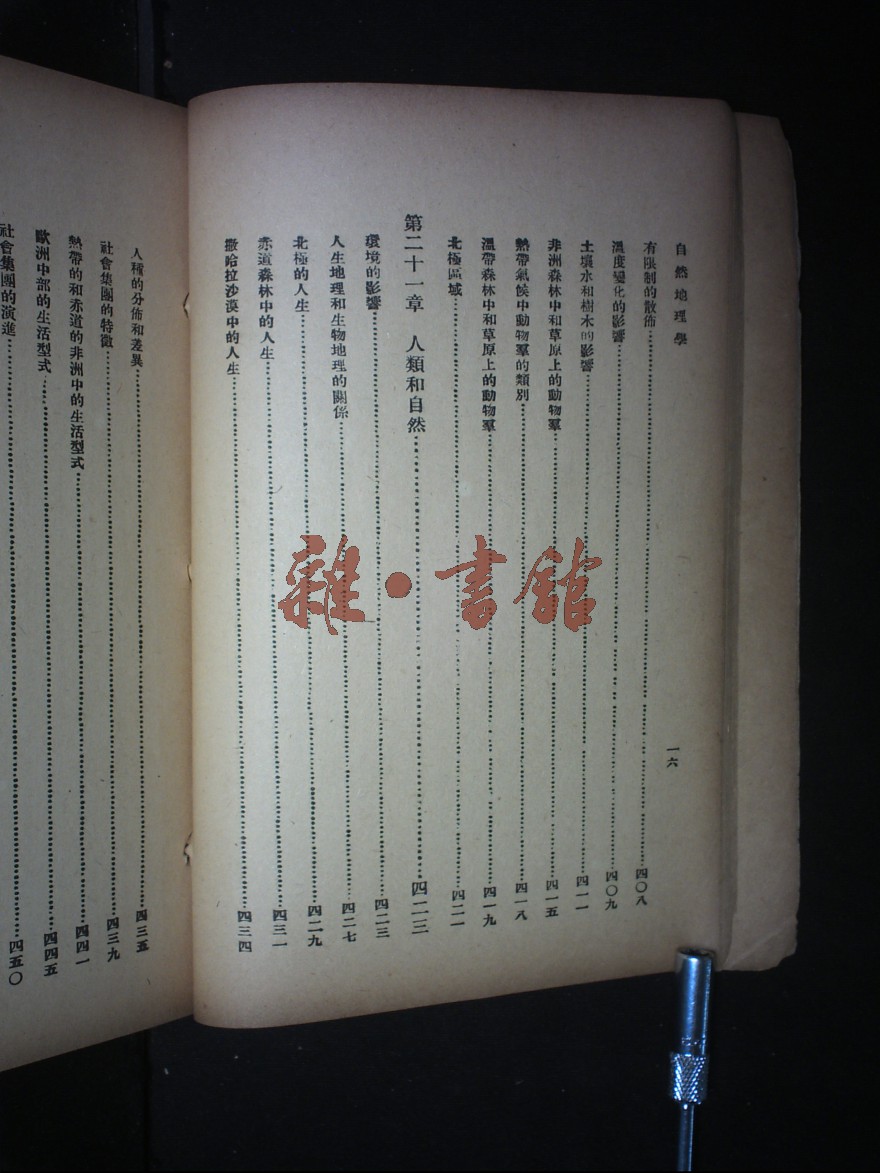 自然地理學
一六
有限制的散佈……四〇八
溫度變化的影響……四〇九
土壤水和樹木的影響……四一一
非洲森林中和草原上的動物羣……四一五
熱帶氣候中動物羣的類別……四一八
溫帶森林中和草原上的動物羣……四一九
北極區域……四二一
第二十一章　人類和自然……四二三
環境的影響……四二三
人生地理和生物地理的關係……四二七
北極的人生……四二九
赤道森林中的人生……四三一
撒哈拉沙漠中的人生……四三四
人種的分佈和差異……四三五
社會集團的特徵……四三九
熱帶的和赤道的非洲中的生活型式……四四一
歐洲中部的生活型式……四四五
社會集團的演進……四五〇
雜·書館